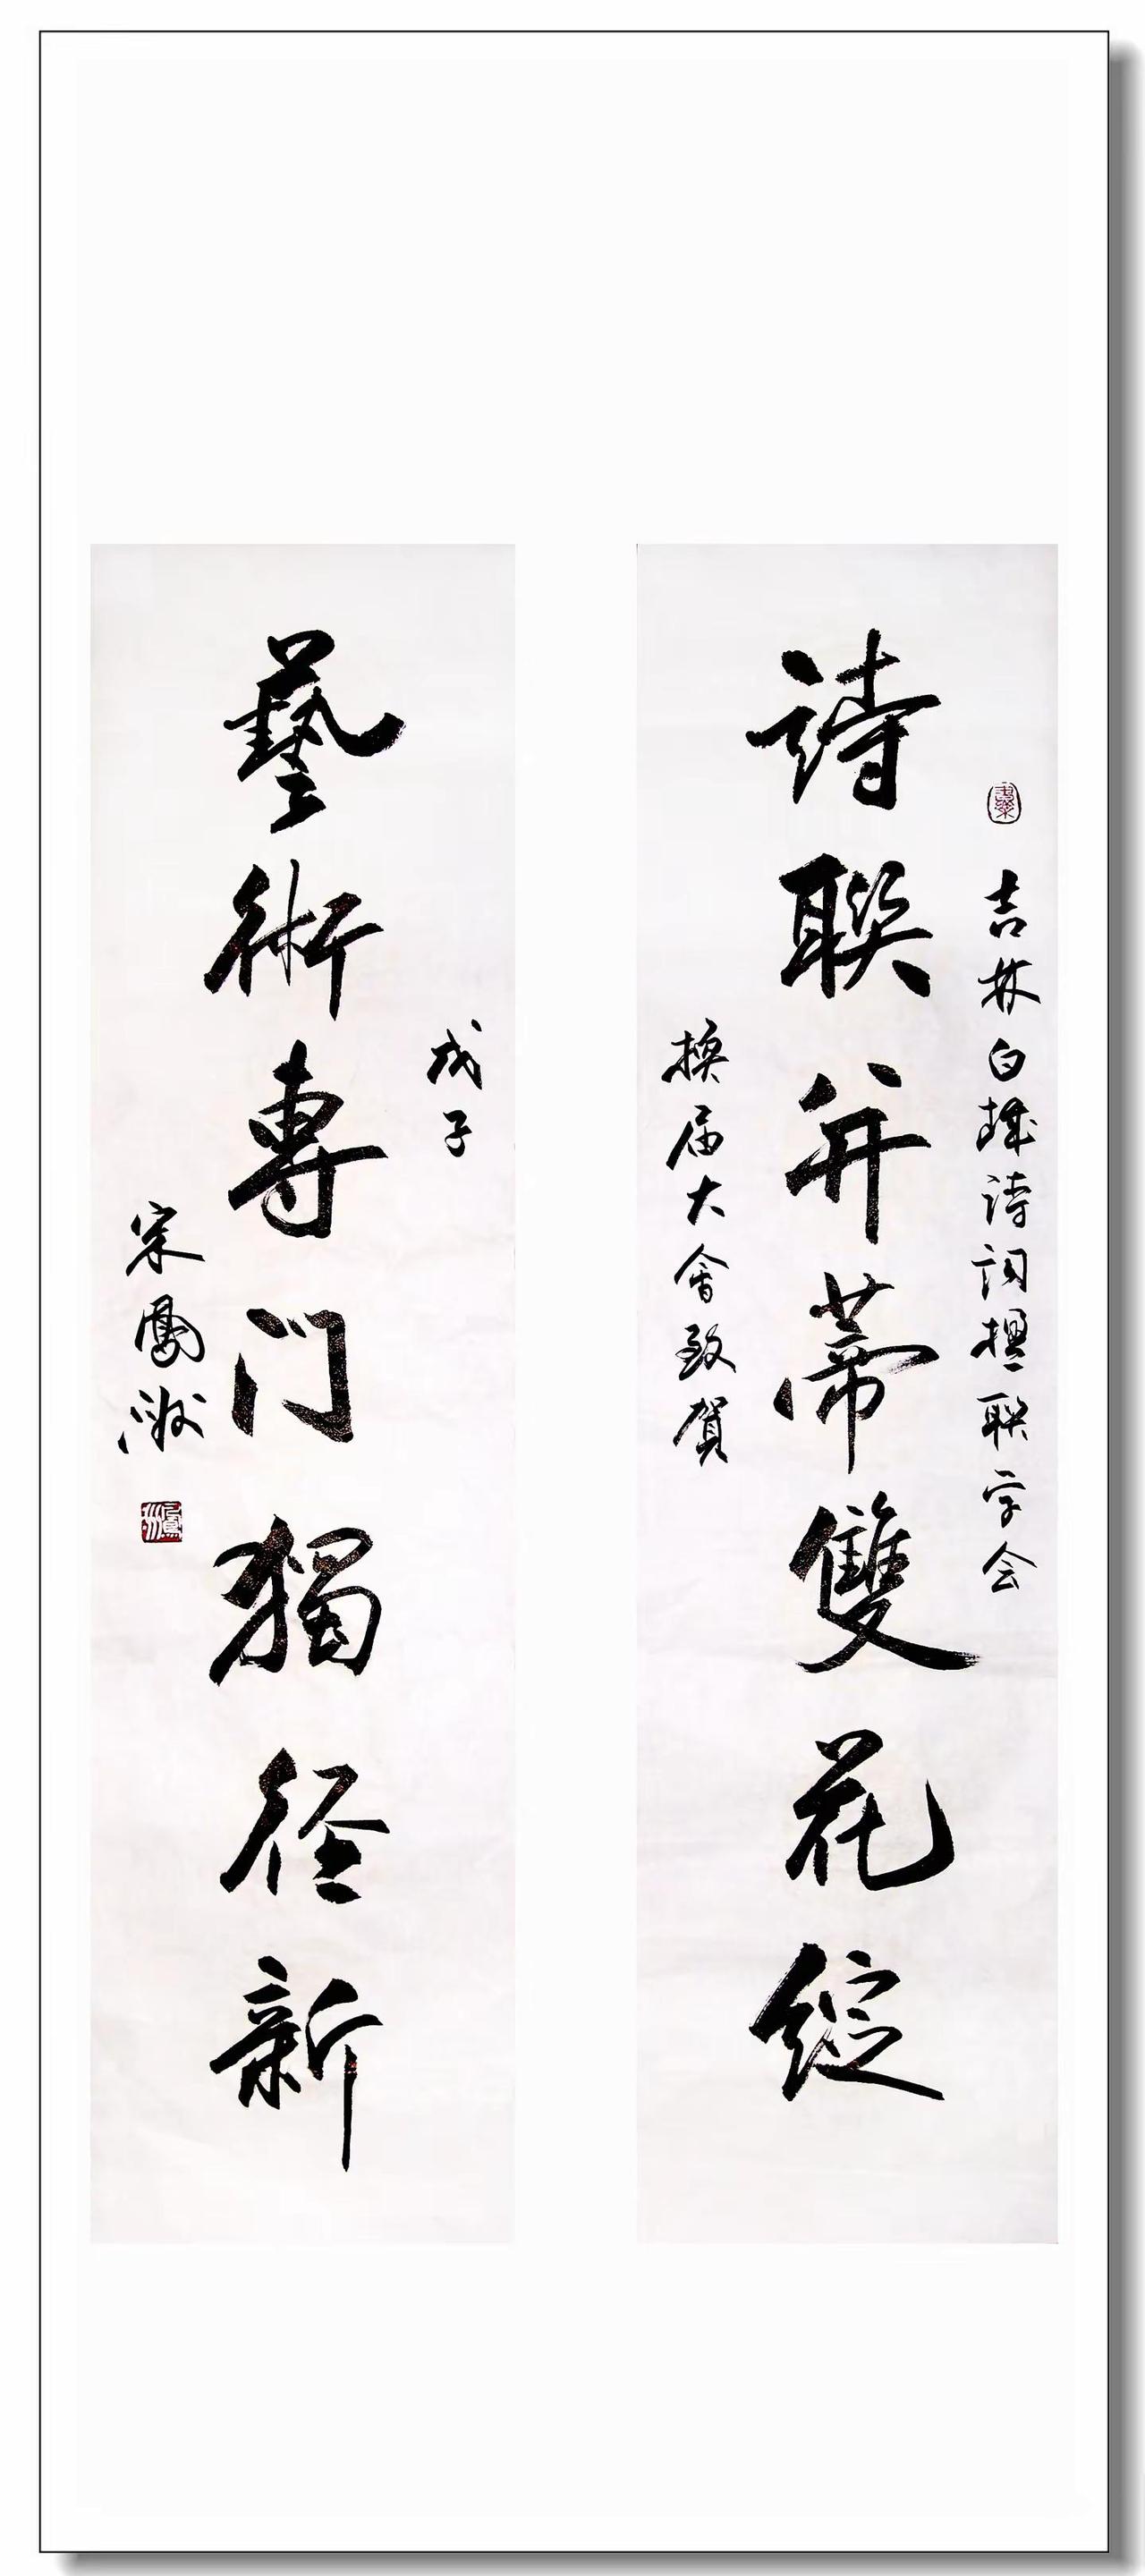 吉林白城诗词楹联学会
詩聯并蒂雙花綻
换届大會致賀
戊子
藝術専门獨径新
宋鳳洲